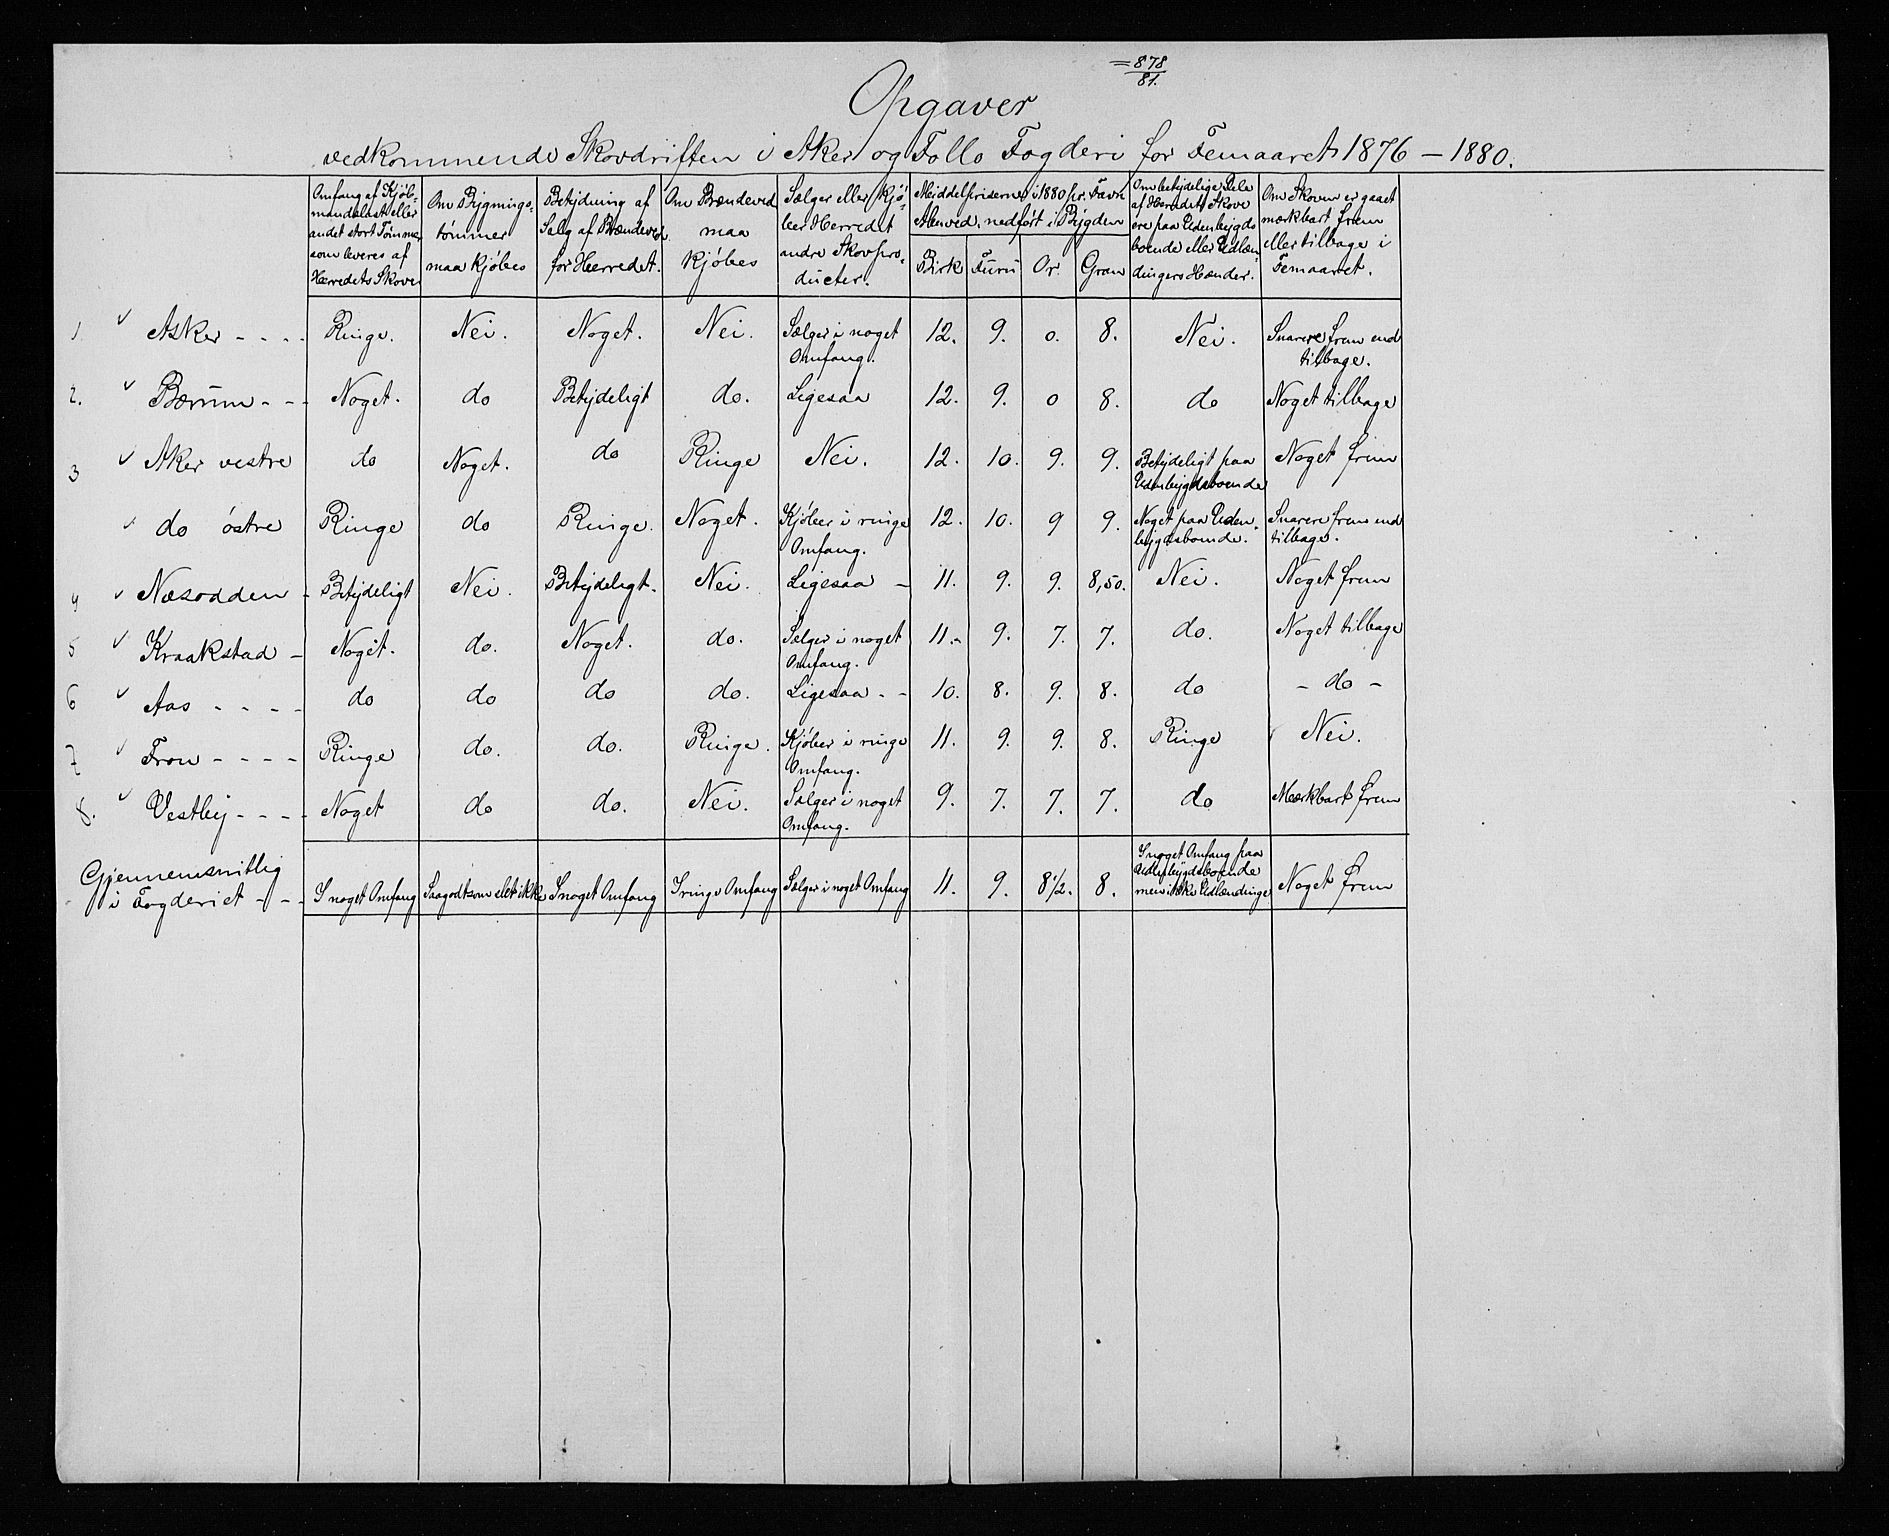 = 878
81.
Opgaver
vedkommende Skovdriften i Aker og Follo Fogderi for Femaaret 1876 – 1880.
Omfang af Kjøb-
mandslast eller
andet stort Tømmer
som leveres af
Herredets Skove
Om Bygnings-
tømmer
maa kjøbes
Betydning af
Salg af Brændeved
for Herredet.
Om Brændeved
maa
kjøbes
Sælger eller kjø-
ber Herredet
andre Skovpro-
ducter.
Middelpriserne i 1880 pr. Favn
Alenved, nedført i Bygden
Birk Furu Or. Gran
Om betydelige Dele
af Herredets Skove
ere paa Udenbygds
boende eller Udlæn-
dingers Hænder.
Om Skoven er gaaet
mærkbart frem
eller tilbage i
Femaaret.
1 ✓ Asker - - - - Ringe. Nei. Noget. Nei. Sælger i noget Omfang. 12. 9. 0. 8. Nei. Snarere frem end tilbage.
2. ✓ Bærum - - - Noget. do Betydeligt do. Ligesaa 12. 9. 0 8. do Noget tilbage
3 ✓ Aker vestre do Noget. do Ringe Nei. 12. 10. 9. 9. Betydeligt paa Udenbygdsboende Noget frem
✓ do østre Ringe do Ringe. Noget. Kjøber i ringe Omfang. 12. 10. 9 9. Noget paa Uden- bygdsboende. Snarere frem end tilbage.
4 ✓ Næsodden - Betydeligt Nei. Betydeligt. Nei. Ligesaa – 11. 9. 9. 8,50. Nei. Noget frem
5 ✓ Kraakstad – Noget. do. Noget. do. Sælger i noget Omfang. 11.- 9. 7. 7. do. Noget tilbage
6 ✓ Aas - - - - do do do do. Ligesaa - - 10. 8. 9. 8. do – do –
7 ✓ Fron - - - - Ringe do. do. Ringe. Kjøber i ringe Omfang. 11. 9. 9. 8. Ringe Nei.
8. ✓ Vestby - - - - Noget do do. Nei. Sælger i noget Omfang. 9. 7. 7. 7. do Mærkbart frem
Gjennemsnitlig
i Fogderiet - - - I noget Omfang Saagodtsom slet ikke I noget Omfang I ringe Omfang Sælger i noget Omfang 11. 9. 8 1/2. 8. I noget Omfang paa Udenbygdsboende men ikke Udlændinge Noget frem